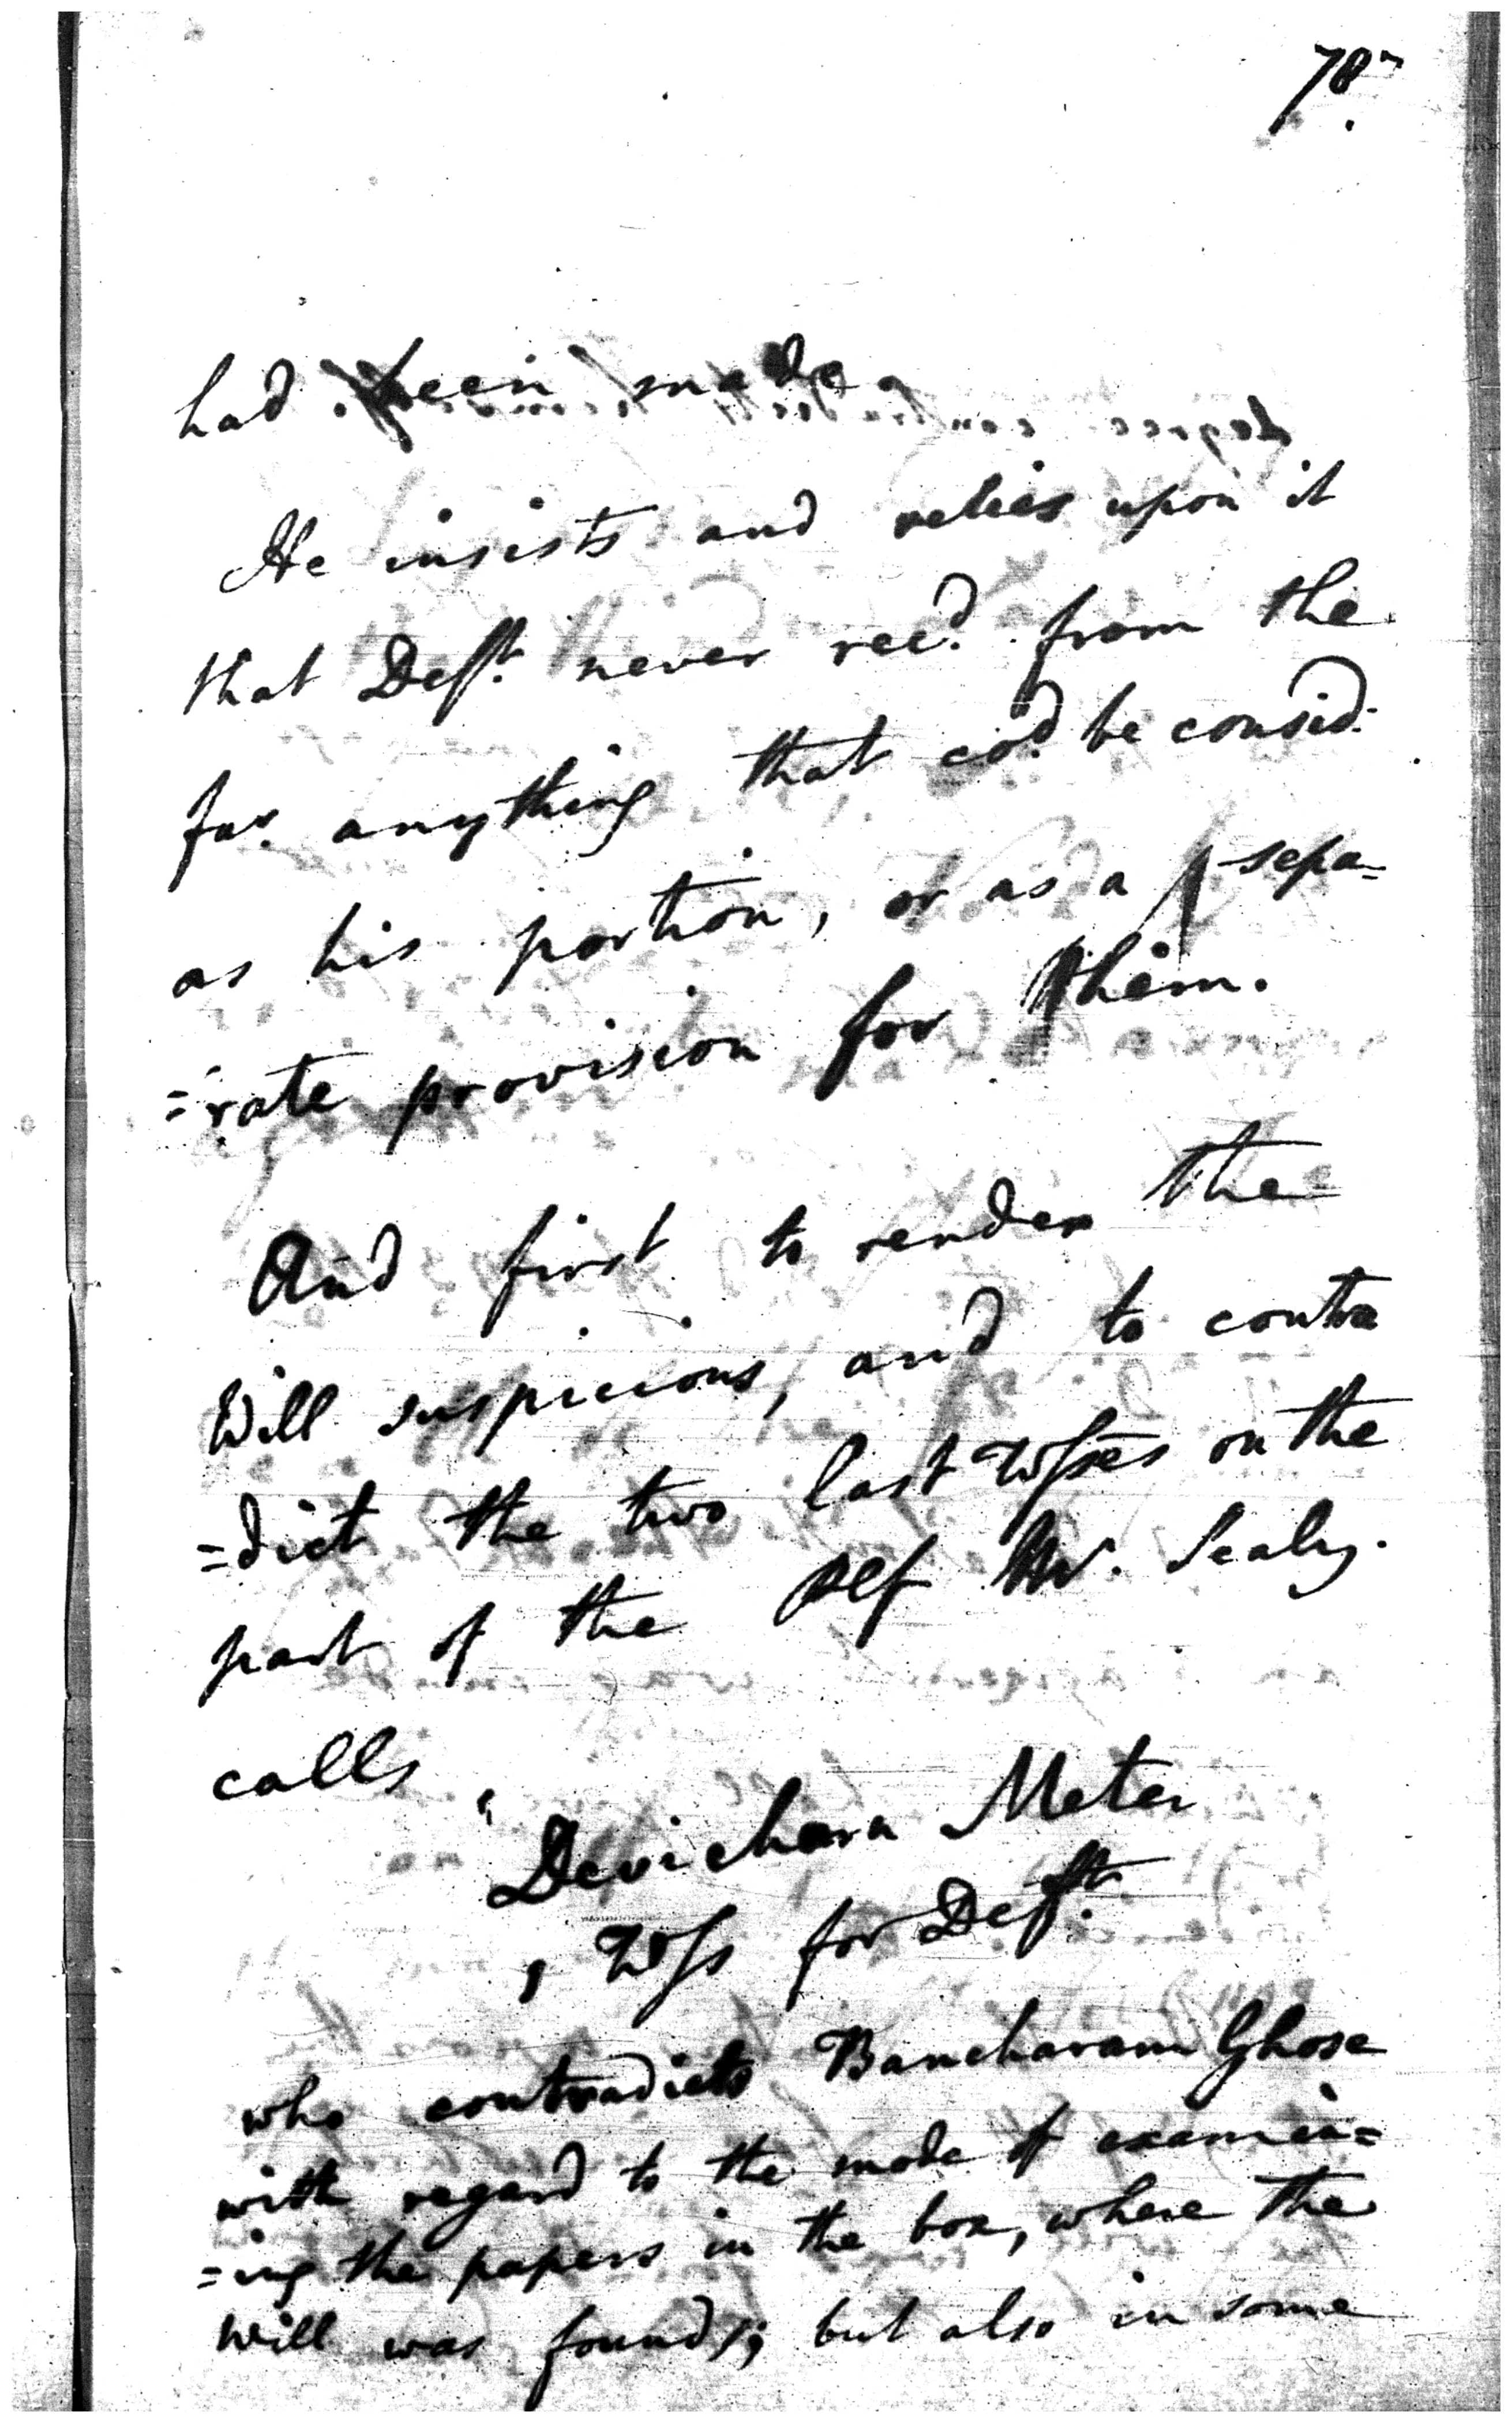 78
had been made
He insists and relies upon it
that Deft. never recd. from the
far. anything that cod. be consid:
as his portion, or as a sepa=
=rate provision for them.
And first to render the
Will suspicious, and to contra
=dict the two last Wsses on the
part of the Plf Mr. Sealy.
calls
"Devicharn Meter
, Wss for Deft.
who contradicts Bancharam Ghose
with regard to the mode of examin=
=ing the papers in the box, where the
Will was found; but also in some